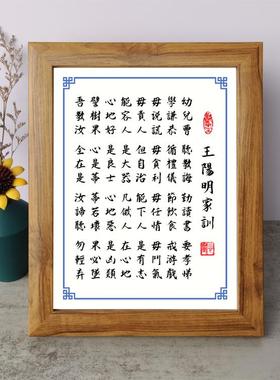 王陽明家訓
幼兒曹 聽教誨 勤讀書 要孝悌
學謙恭 循禮儀 節飲食 戒游戲
毋說謊 毋貪利 毋任情 毋鬥氣
毋責人 但自治 能下人 是有志
能容人 是大器 凡做人 在心地
心地好 是良士 心地惡 是凶類
譬樹果 心是蒂 蒂若壞 果必墜
吾教汝 全在是 汝諦聽 勿輕弃